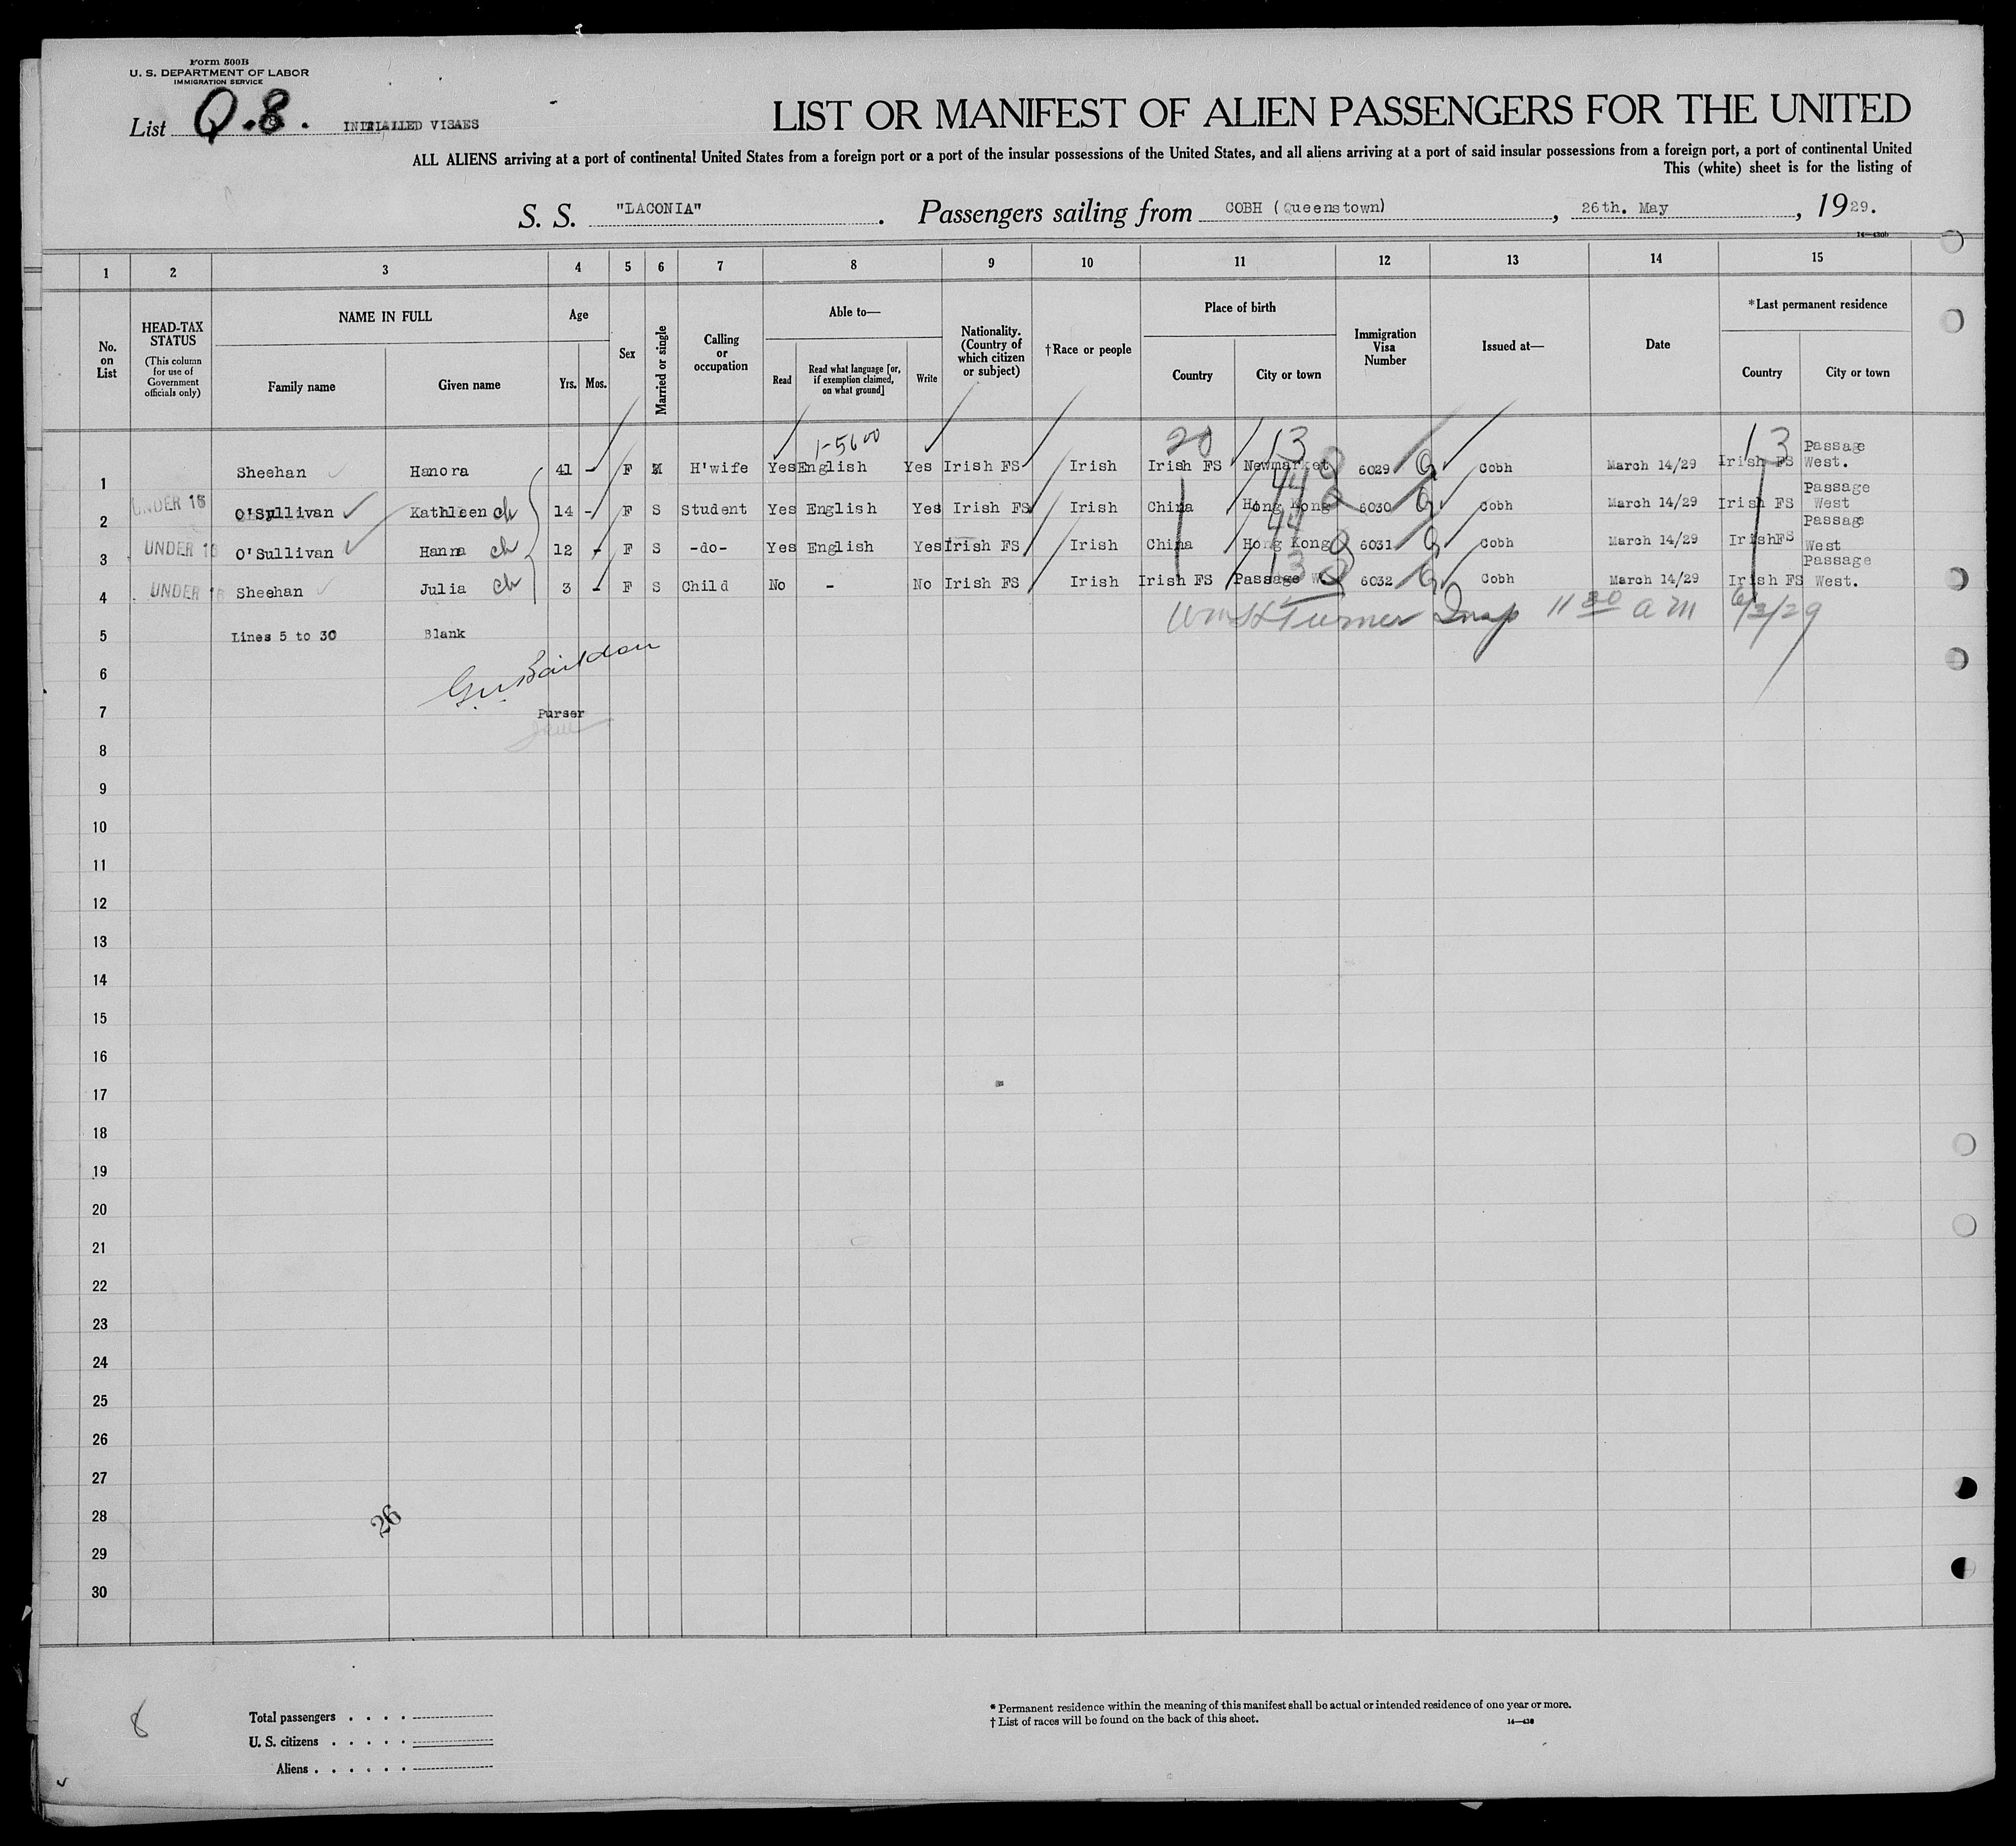 Form 500B
U. S. DEPARTMENT OF LABOR
IMMIGRATION SERVICE
List Q.8. INITIALLED VISAES
LIST OR MANIFEST OF ALIEN PASSENGERS FOR THE UNITED
ALL ALIENS arriving at a port of continental United States from a foreign port or a port of the insular possessions of the United States, and all aliens arriving at a port of said insular possessions from a foreign port, a port of continental United
This (white) sheet is for the listing of
S. S. "LACONIA". Passengers sailing from COBH (Queenstown), 26th. May, 1929.
14—430b
1 2 3 4 5 6 7 8 9 10 11 12 13 14 15
No. on List
HEAD-TAX STATUS
(This column for use of Government officials only)
NAME IN FULL
Family name Given name
Age
Yrs. Mos.
Sex
Married or single
Calling or occupation
Able to—
Read
Read what language [or, if exemption claimed, on what ground]
Write
Nationality. (Country of which citizen or subject)
†Race or people
Place of birth
Country City or town
Immigration Visa Number
Issued at—
Date
*Last permanent residence
Country City or town
1-5600 20 13 13
1 Sheehan Hanora 41 - F M H'wife Yes English Yes Irish FS Irish Irish FS Newmarket 6029 Cobh March 14/29 Irish FS Passage West.
44
2 UNDER 16 O'Sullivan Kathleen ch 14 - F S Student Yes English Yes Irish FS Irish China Hong Kong 6030 Cobh March 14/29 Irish FS Passage West
44
3 UNDER 16 O'Sullivan Hanna ch 12 - F S -do- Yes English Yes Irish FS Irish China Hong Kong 6031 Cobh March 14/29 IrishFS Passage West
13
4 UNDER 16 Sheehan Julia ch 3 - F S Child No - No Irish FS Irish Irish FS Passage W. 6032 Cobh March 14/29 Irish FS Passage West.
Wm H Turner Insp 11 30 a m 6/3/29
5 Lines 5 to 30 Blank
6
7 Purser
8
9
10
11
12
13
14
15
16
17
18
19
20
21
22
23
24
25
26
27
28
26
29
30
8
Total passengers . . . .
U. S. citizens . . . . .
Aliens . . . . . .
* Permanent residence within the meaning of this manifest shall be actual or intended residence of one year or more.
† List of races will be found on the back of this sheet.
14—430